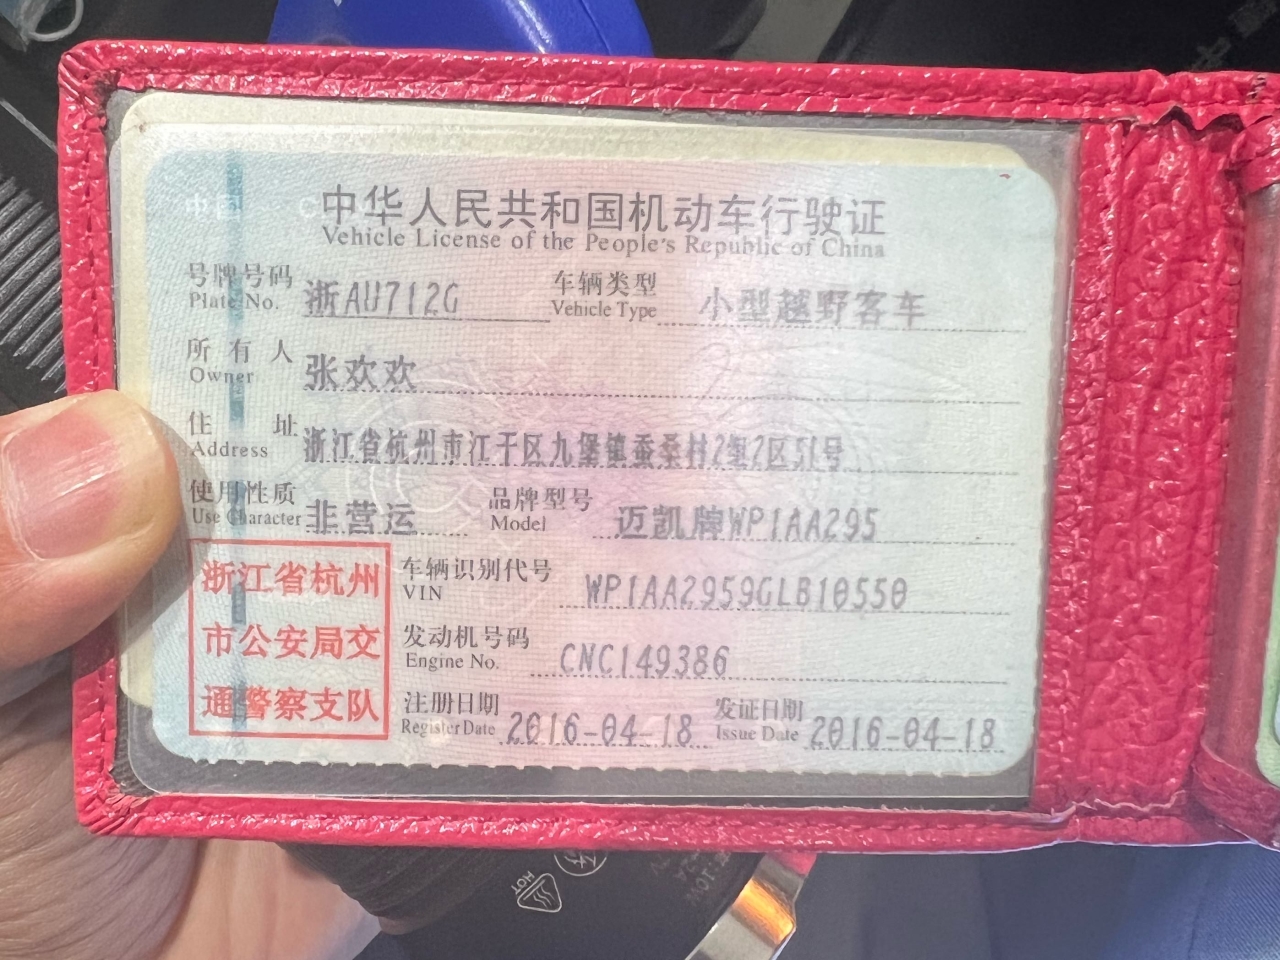 中华人民共和国机动车行驶证
Vehicle License of the People's Republic of China
号牌号码 浙AU712G 车辆类型 小型越野客车
Plate No. Vehicle Type
所有人 张欢欢
Owner
住址 浙江省杭州市江干区九堡镇蚕桑村2组2区51号
Address
使用性质 非营运 品牌型号 迈凯牌WP1AA295
Use Character Model
浙江省杭州
市公安局交
通警察支队
车辆识别代号 WP1AA2959GLB10550
VIN
发动机号码 CNC149386
Engine No.
注册日期 2016-04-18 发证日期 2016-04-18
Register Date Issue Date
HOT